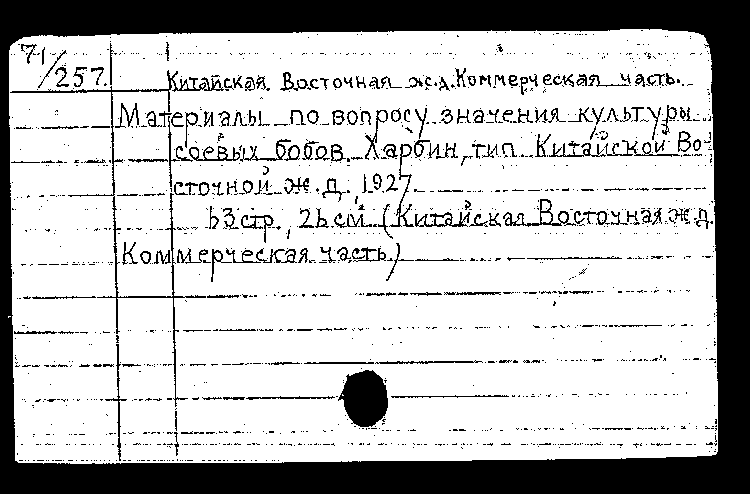 71/257. Китайская Восточная ж.д. Коммерческая часть.
Материалы по вопросу значения культуры
соевых бобов. Харбин, тип. Китайской Во-
сточной ж.д., 1927.
63 стр., 26 см (Китайская Восточная ж.д.
Коммерческая часть.)